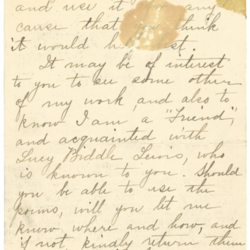 and use it any
cause that you think
it would
It may be of interest
to you to see some other
of my work and also to
know I am a "Friend,"
and acquainted with
Lucy Biddle Lewis, who
is known to you. Should
you be able to use the
poems, will you let me
know where and how, and
if not kindly return them